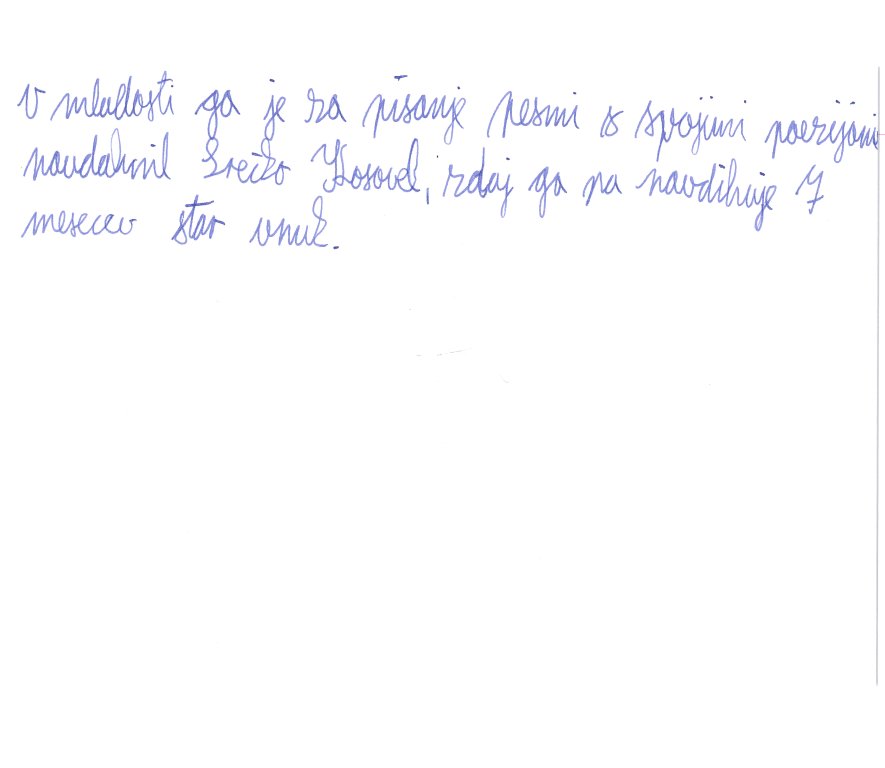 V mladosti ga je za pisanje pesmi s svojimi poezijami
navdahnil Srečko Kosovel, zdaj ga pa navdihuje 7
mesecev star vnuk.